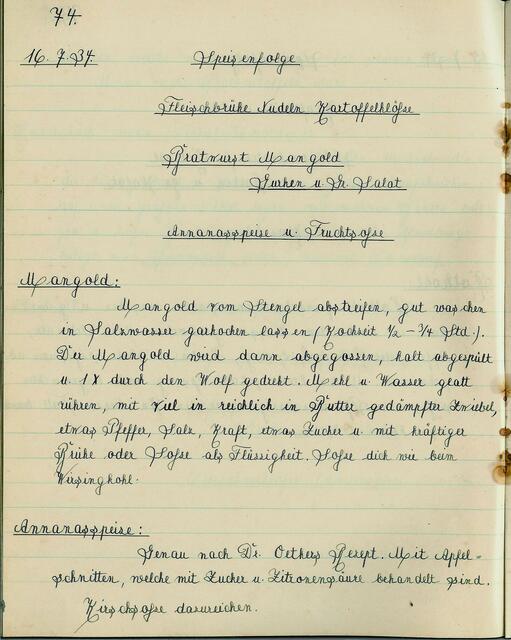 74.
16. 7. 34. Speisenfolge
Fleischbrühe Nudeln Kartoffelklöse
Bratwurst Mangold
Gurken u. Gr. Salat
Annanasspeise u. Fruchtsose
Mangold:
Mangold vom Stengel abstreifen, gut waschen
in Salzwasser garkochen lassen (Kochzeit ½ - ¾ Std.).
Der Mangold wird dann abgegossen, kalt abgespült
u. 1 X durch den Wolf gedreht. Mehl u. Wasser glatt
rühren, mit viel in reichlich in Butter gedämpfter Zwiebel,
etwas Pfeffer, Salz, Kraft, etwas Zucker u. mit kräftiger
Brühe oder Sose als Flüssigkeit. Sose dick wie beim
Wirsingkohl.
Annanasspeise:
Genau nach Dr. Oetkers Rezept. Mit Apfel-
schnitten, welche mit Zucker u. Zitronensäure behandelt sind.
Kirschsose dazureichen.